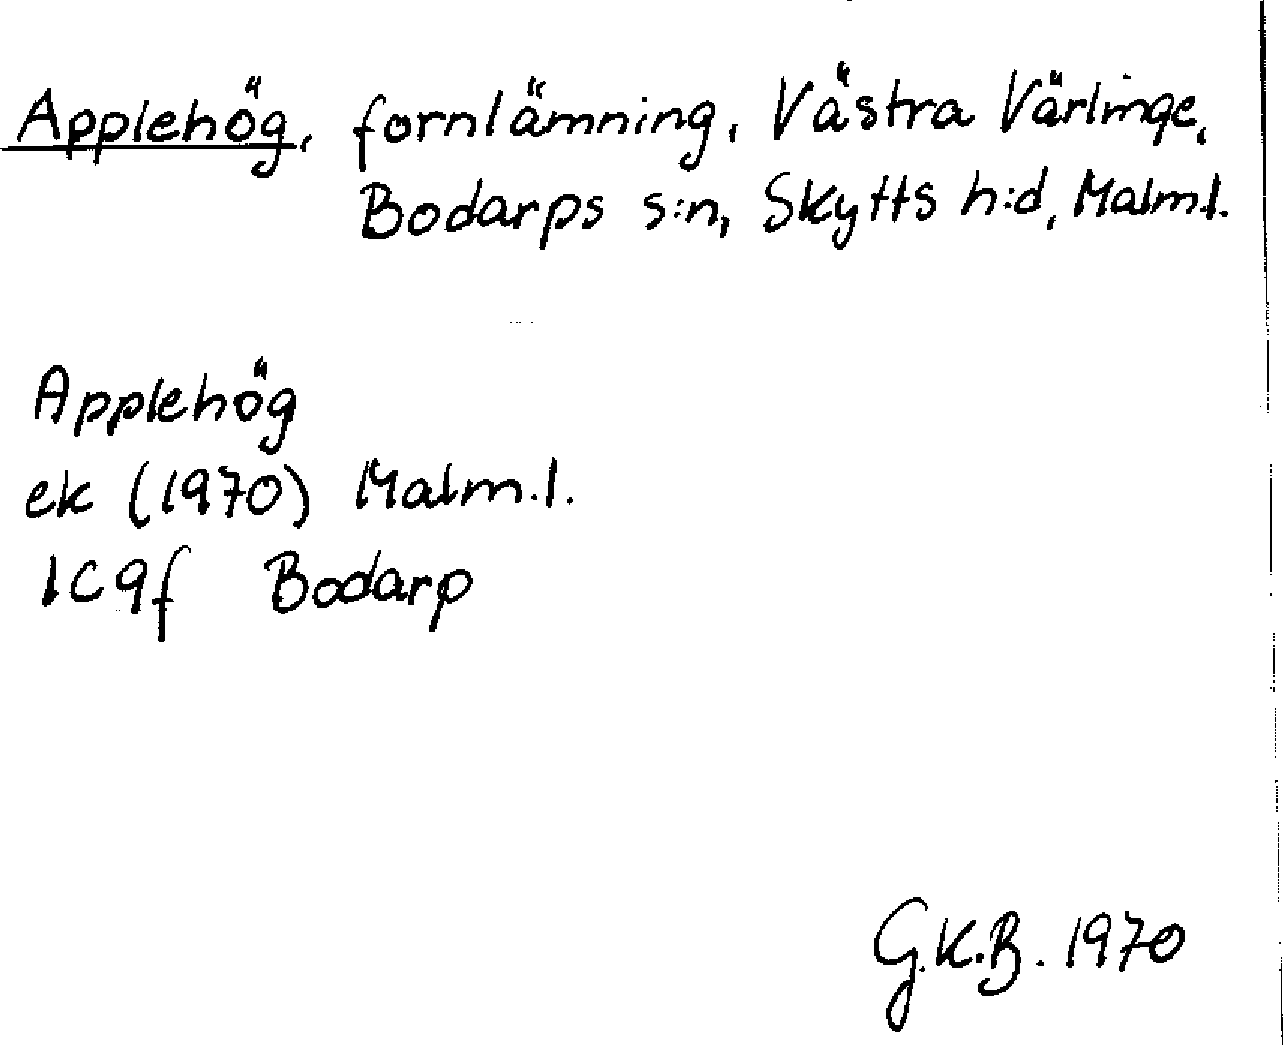 Applehög, fornlämning, Västra Värlinge,
Bodarps s:n, Skytts h:d, Malm.l.
Applehög
ek (1970) Malm.l.
1C9f Bodarp
G.K.B. 1970